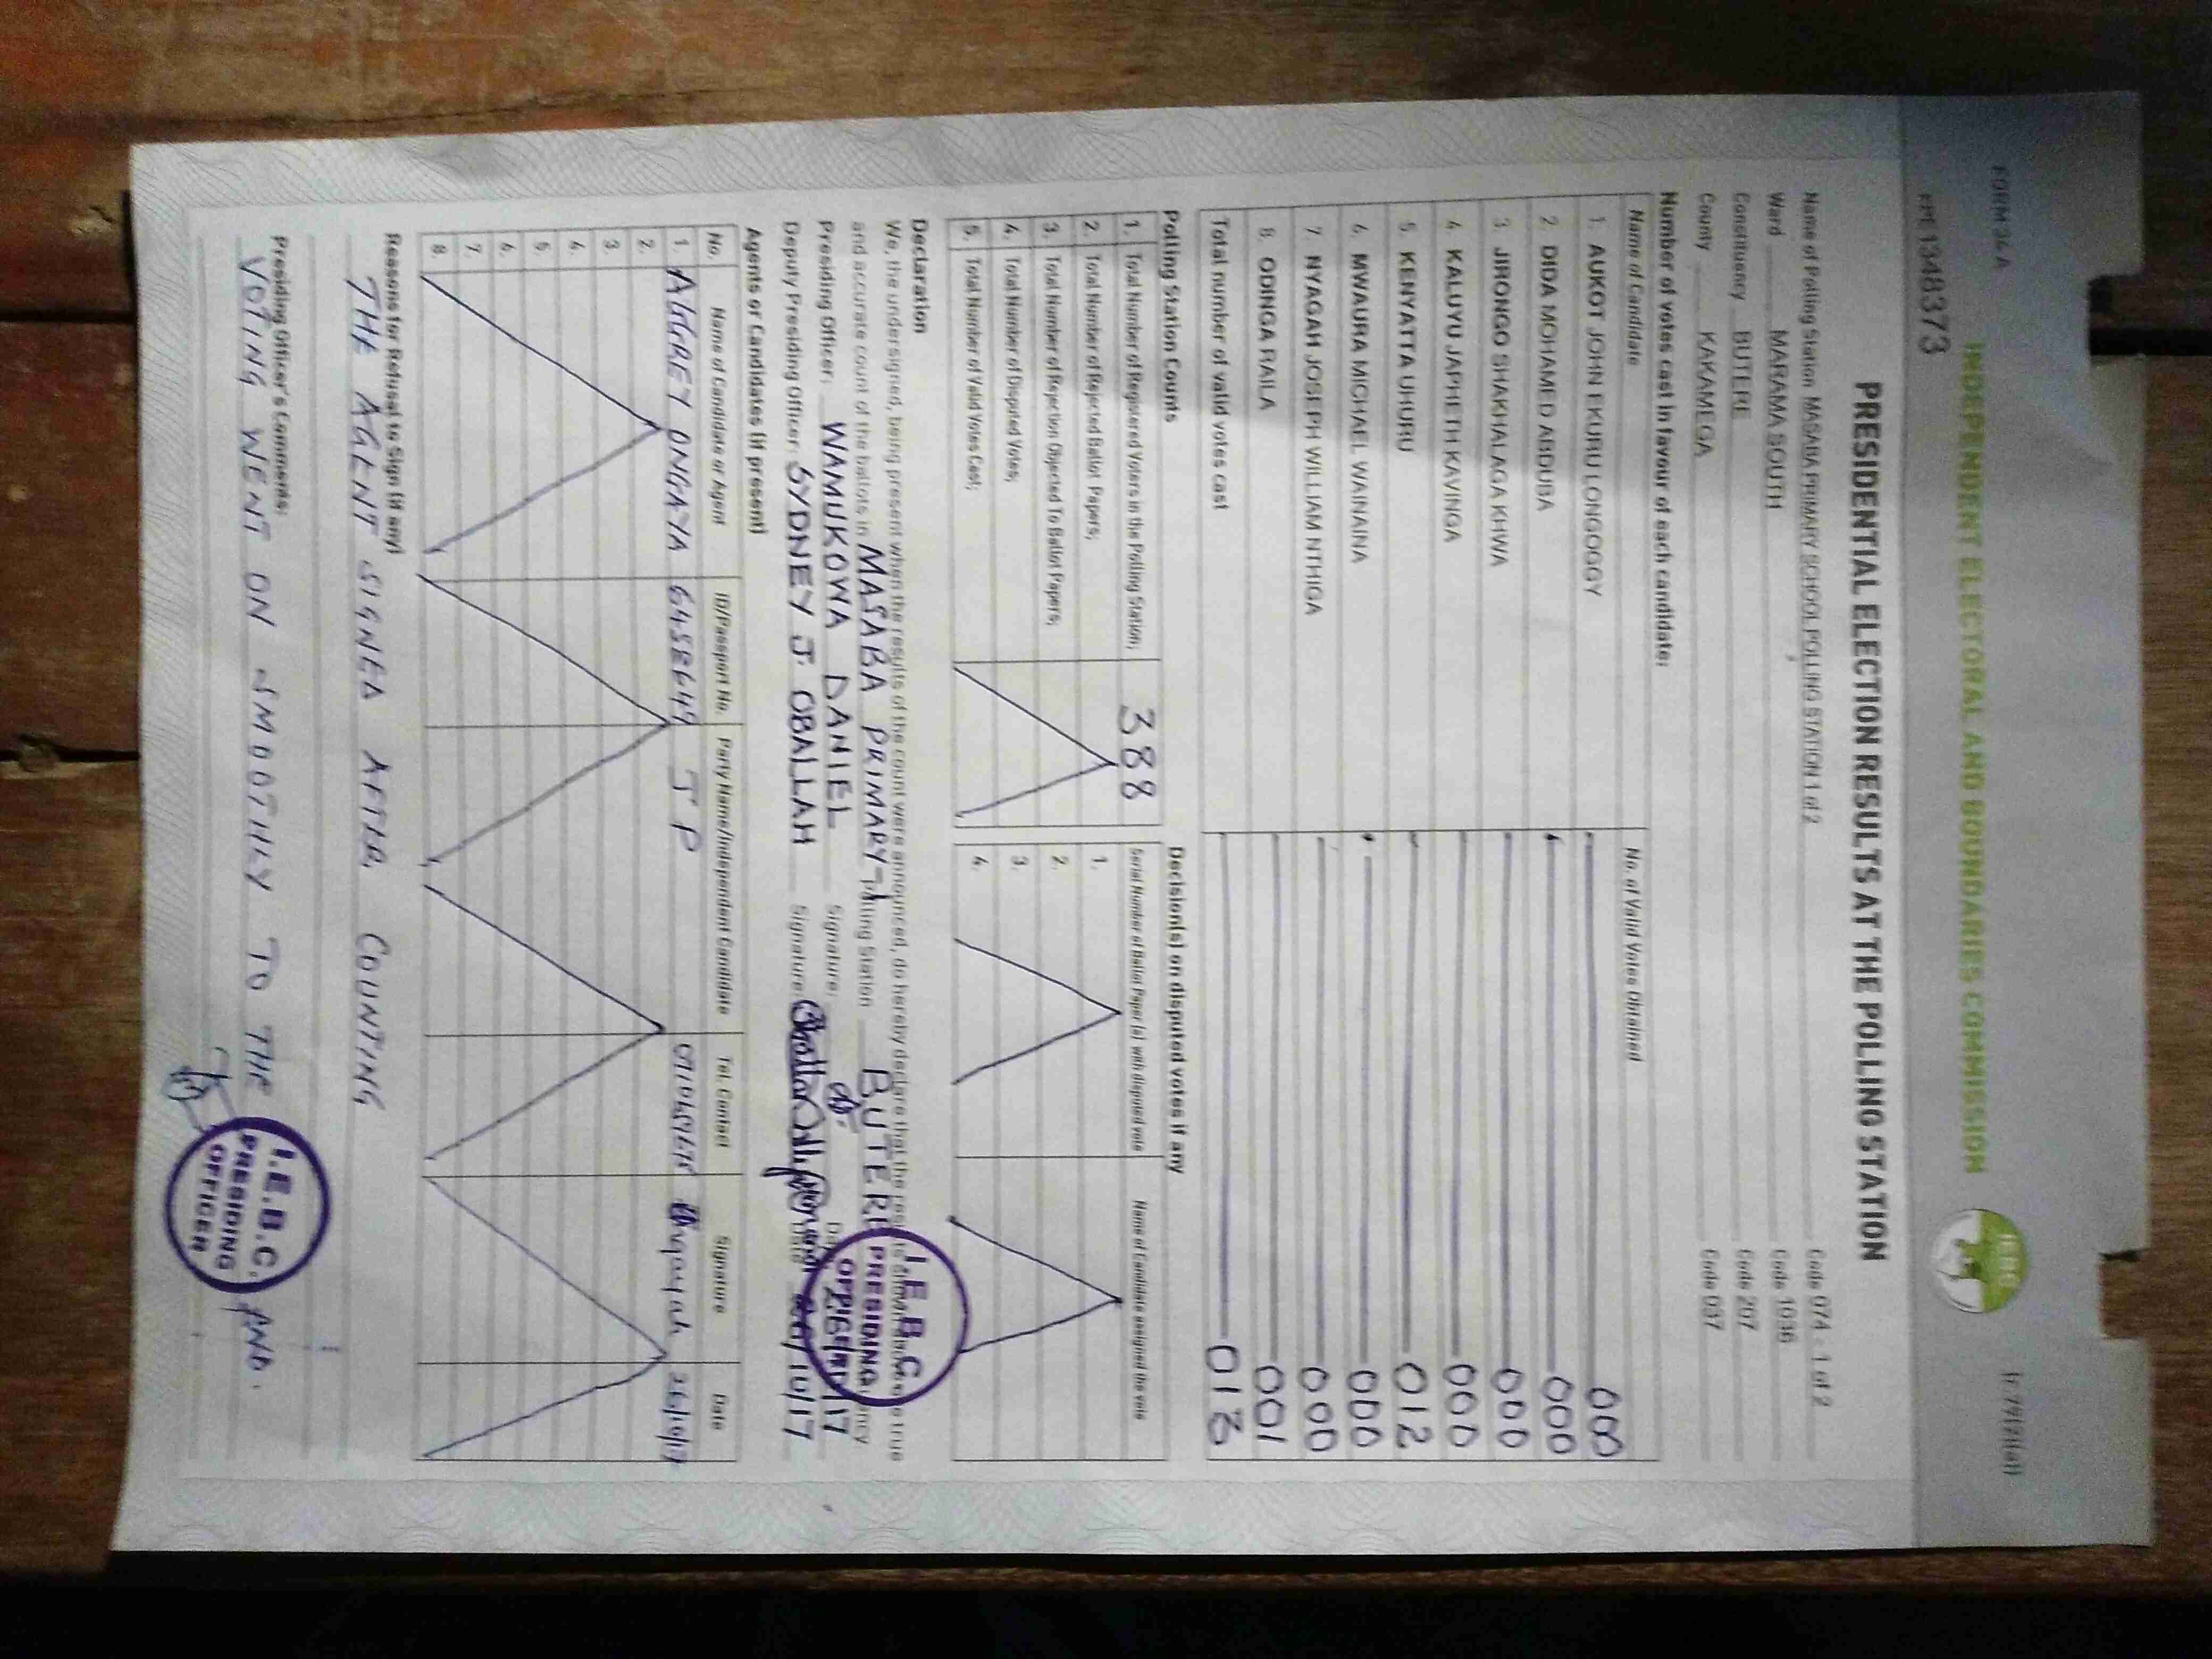 FORM 34A
INDEPENDENT ELECTORAL AND BOUNDARIES COMMISSION
IEBC
PRESIDENTIAL ELECTION RESULTS AT THE POLLING STATION
Name of Polling Station MASABA PRIMARY SCHOOL POLLING STATION 1 of 2 Code 074 - 1 of 2
Ward MARAMA SOUTH Code 1036
Constituency BUTERE Code 207
County KAKAMEGA Code 037
Number of votes cast in favour of each candidate:
Name of Candidate No. of Valid Votes Obtained
1. AUKOT JOHN EKURU LONGOGGY 000
2. DIDA MOHAMED ABDUBA 000
3. JIRONGO SHAKHALAGA KHWA 000
4. KALUYU JAPHETH KAVINGA 000
5. KENYATTA UHURU 012
6. MWAURA MICHAEL WAINAINA 000
7. NYAGAH JOSEPH WILLIAM NTHIGA 000
8. ODINGA RAILA 001
Total number of valid votes cast 013
Polling Station Counts
1. Total Number of Registered Voters in the Polling Station; 388
2. Total Number of Rejected Ballot Papers;
3. Total Number of Rejection Objected To Ballot Papers;
4. Total Number of Disputed Votes;
5. Total Number of Valid Votes Cast;
Decision(s) on disputed votes if any
Serial Number of Ballot Paper (s) with disputed vote Name of Candidate assigned the vote
1.
2.
3.
4.
Declaration
We, the undersigned, being present when the results of the count were announced, do hereby declare that the true
and accurate count of the ballots in MASABA PRIMARY Polling Station BUTERE
Presiding Officer: WAMUKOWA DANIEL Signature:
Deputy Presiding Officer: SYDNEY J. OBALLAH Signature: 26/10/17
I.E.B.C. PRESIDING OFFICER
Agents or Candidates (if present)
No. Name of Candidate or Agent ID/Passport No. Party Name/Independent Candidate Tel. Contact Signature Date
1. AGGREY ONGAYA JP 26/10/17
2.
3.
4.
5.
6.
7.
8.
Reasons for Refusal to Sign (if any)
THE AGENT SIGNED AFTER COUNTING
Presiding Officer's Comments:
VOTING WENT ON SMOOTHLY TO THE END.
I.E.B.C. PRESIDING OFFICER